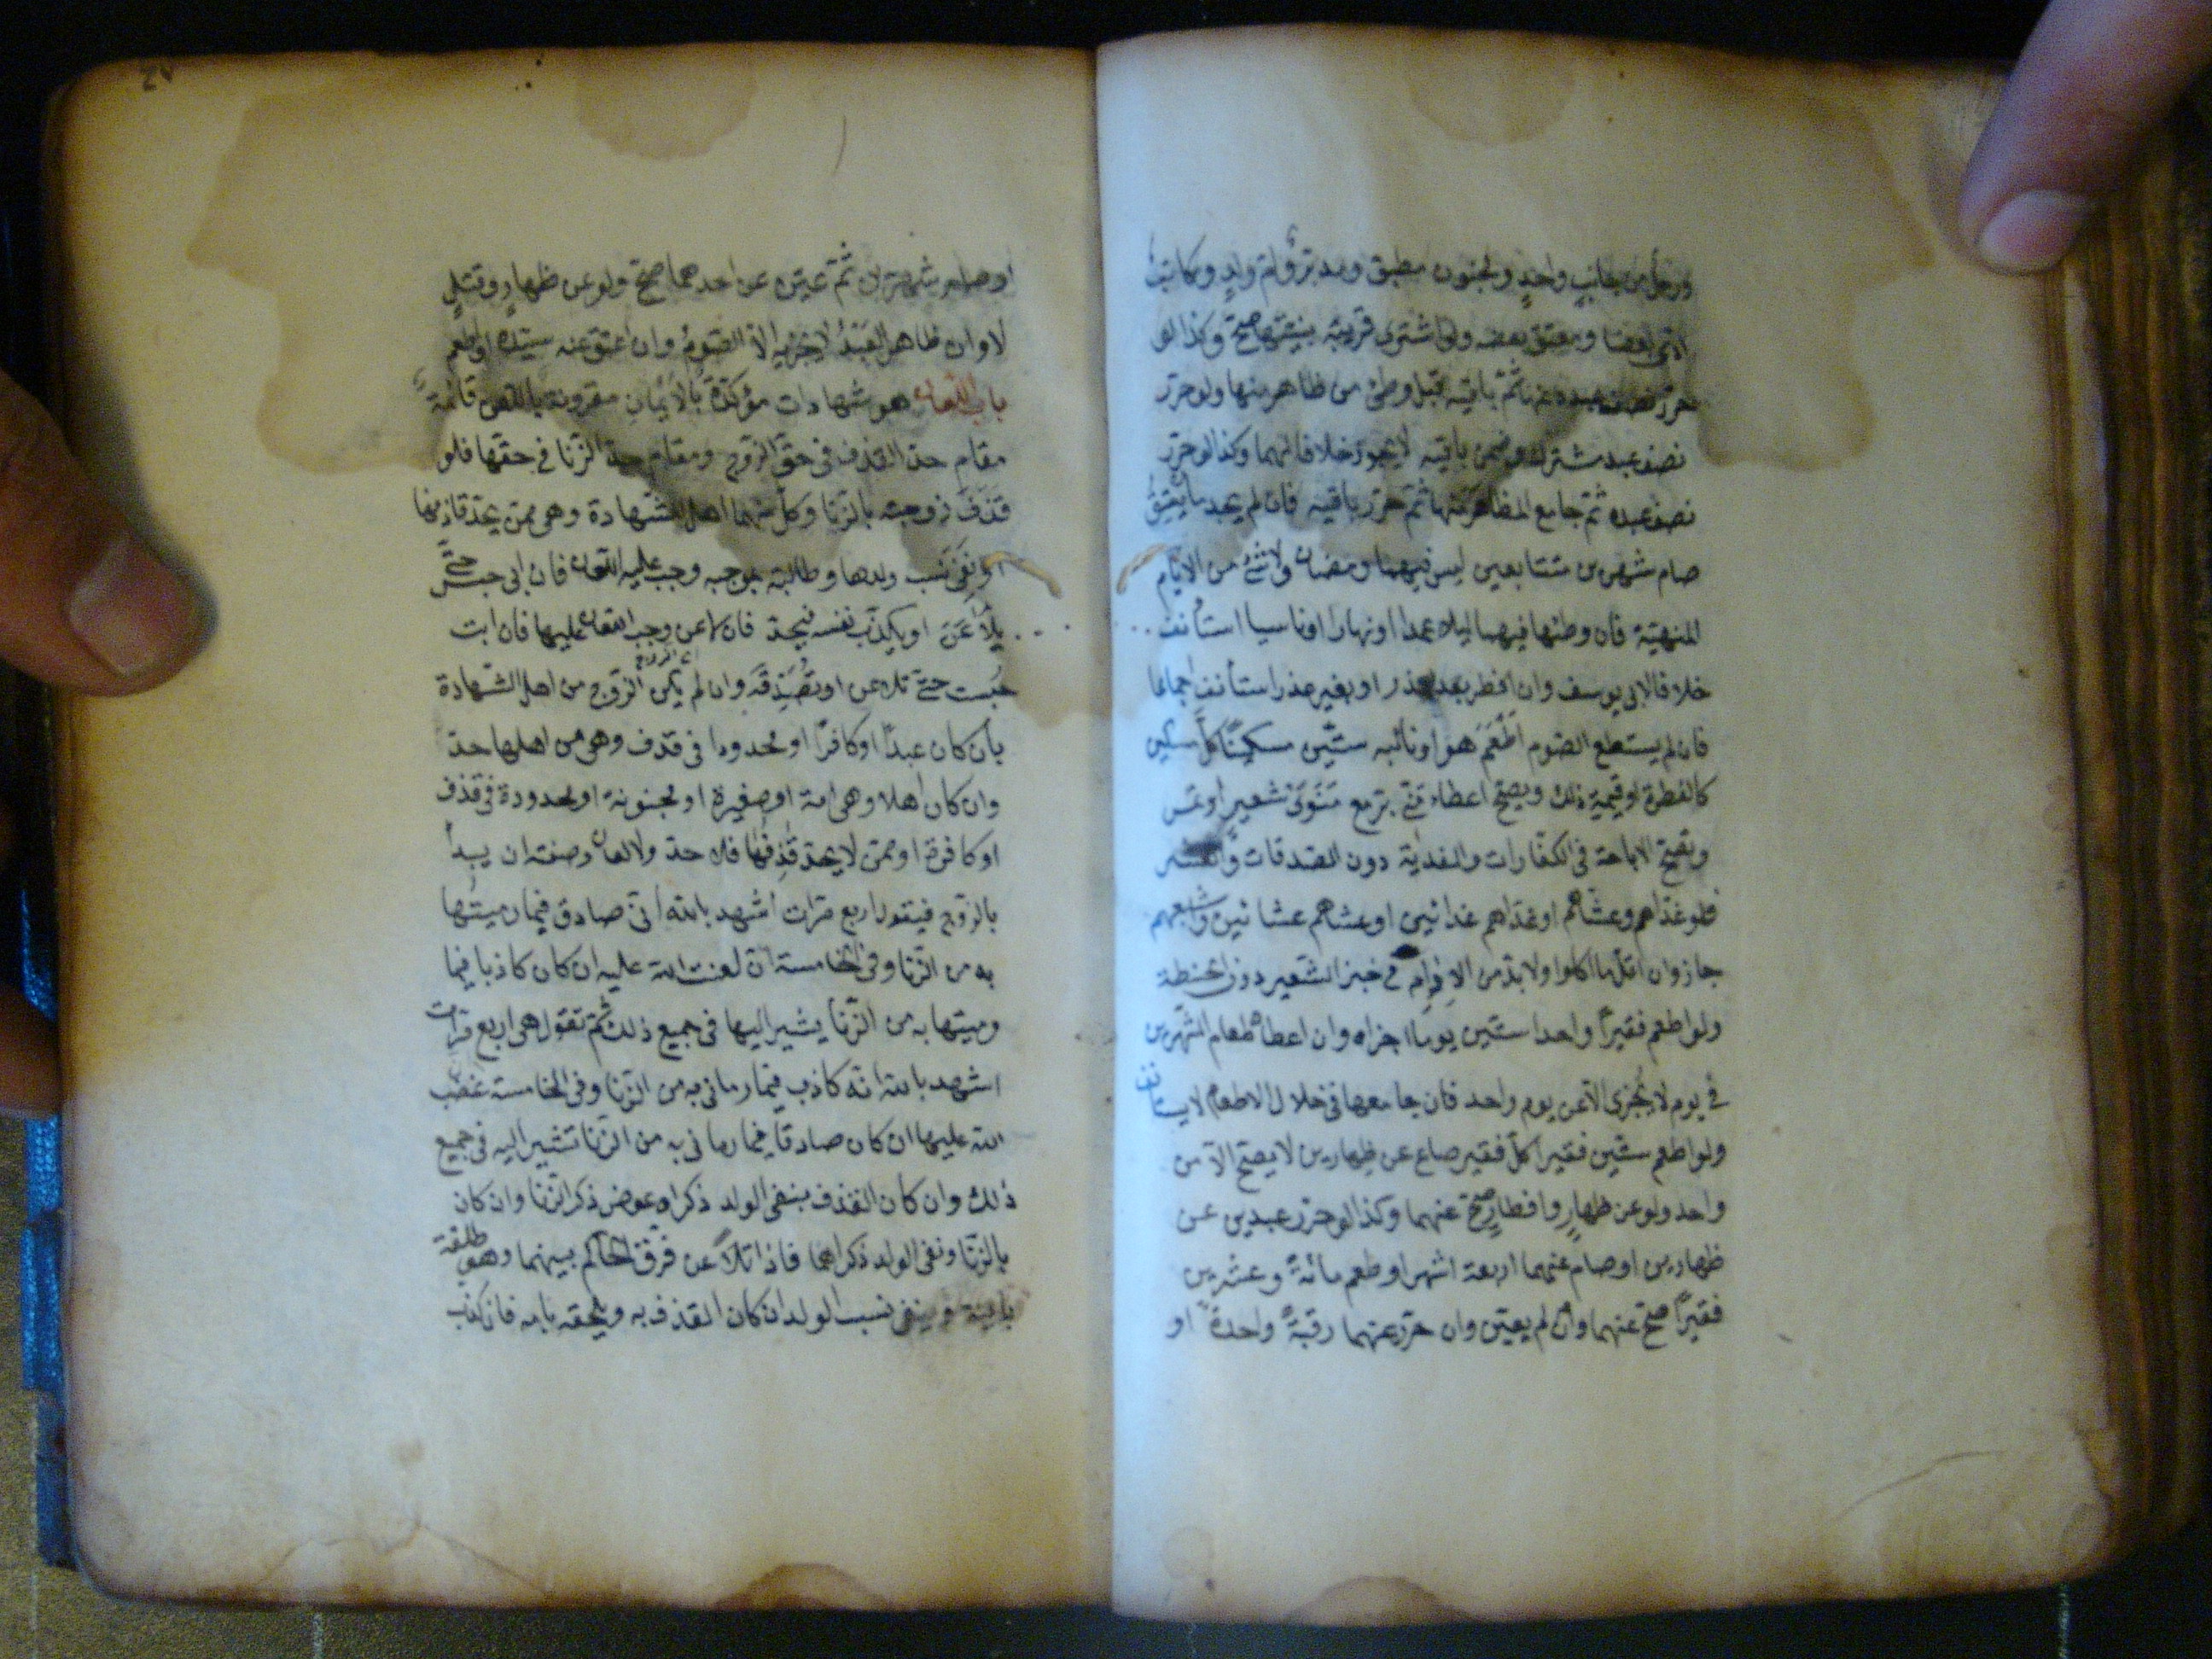 ورجل من جانب واحد ومجنون مطبق ومدبر وام ولد ومكاتب
ادى بعضا ومعتق بعضه ولو اشترى قريبه بنيتها صح وكذا لو
حرر نصف عبده عنها ثم باقيه قبل وطئ من ظاهر منها ولو حرر
نصف عبد مشترك وضمن باقيه لا يجوز خلافا لهما وكذا لو حرر
نصف عبده ثم جامع المظاهر منها ثم حرر باقيه فان لم يجد ما يعتق
صام شهرين متتابعين ليس فيهما رمضان ولا شئ من الايام
المنهية فان وطئها فيهما ليلا عمدا او نهارا او ناسيا استأنف
خلافا لابى يوسف وان افطر بعذر او بغير عذر استأنف اجماعا
فان لم يستطع الصوم اطعم هو او نائبه ستين مسكينا كل مسكين
كالفطرة او قيمة ذلك ويصح اعطاء من بر مع منوى شعير او تمر
وتصح الاباحة فى الكفارات والفدية دون الصدقات والعشر
فلو غداهم وعشاهم او غداهم غدائين او عشاهم عشائين واشبعهم
جاز وان قل ما اكلوا ولا بد من الادام فى خبز الشعير دون الحنطة
ولو اطعم فقيرا واحدا ستين يوما اجزاه وان اعطاه طعام الشهرين
فى يوم لا يجزى الا عن يوم واحد فان جامعها فى خلال الاطعام لا يستأنف
ولو اطعم ستين فقيرا كل فقير صاع عن ظهارين لا يصح الا عن
واحد ولو عن ظهار وافطار صح عنهما وكذا لو حرر عبدين عن
ظهارين او صام عنهما اربعة اشهر او طعم مائة وعشرين
فقيرا صح عنهما وان لم يعين وان حرر عنهما رقبة واحدة او
٤٧
او صام شهرين ثم عين عن احدهما صح ولو عن ظهار وقتل
لا وان ظاهر العبد لا يجزيه الا الصوم وان اعتق عنه سيده او اطعم
باب اللعان هو شهادات مؤكدة بالايمان مقرونة باللعن قائمة
مقام حد القذف فى حق الزوج ومقام حد الزنا فى حقها فلو
قذف زوجته بالزنا وكل منهما اهل الشهادة وهى ممن يحد قاذفها
او نفى نسب ولدها وطالبته بموجبه وجب عليه اللعان فان ابى حبس حتى
يلاعن او يكذب نفسه فيحد فان لاعن وجب اللعان عليها فان ابت
حبست حتى تلاعن او تصدقه وان لم يكن الزوج من اهل الشهادة
بان كان عبدا او كافرا او محدودا فى قذف وهى من اهلها حد
وان كان اهلا وهى امة او صغيرة او مجنونة او محدودة فى قذف
او كافرة او ممن لا يحد قاذفها فلا حد ولا لعان وصفته ان يبدأ
بالزوج فيقول اربع مرات اشهد بالله انى صادق فيما رميتها
به من الزنا وفى الخامسة ان لعنت الله عليه ان كان كاذبا فيما
رميتها به من الزنا يشير اليها فى جميع ذلك ثم تقول هى اربع مرات
اشهد بالله انه كاذب فيما رمانى به من الزنا وفى الخامسة غضب
الله عليها ان كان صادقا فيما رمانى به من الزنا تشير اليه فى جميع
ذلك وان كان القذف بنفى الولد ذكراه عوض ذكر الزنا وان كان
بالزنا ونفى الولد ذكراهما فاذا تلاعن فرق الحاكم بينهما وهو طلقة
باينة وينفى نسب الولد ان كان القذف به ويلحقه بامه فان كذب